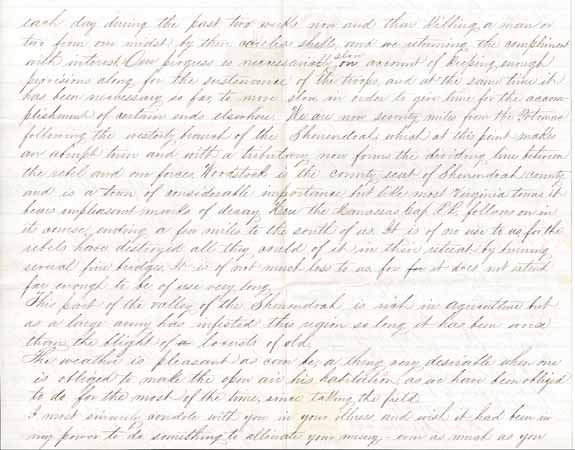 each day during the past two weeks now and then killing a man or
two from our midst by their careless shells, and we returning the compliment
with interest. Our progress is necessarily slow on account of keeping enough
provisions along for the sustenance of the troops, and at the same time it
has been necessary so far to move slow in order to give time for the accom-
plishment of certain ends elsewhere. We are now seventy miles from the Potomac
following the westerly branch of the Shenendoah, which at this point makes
an abrupt turn and with a tributary now forms the dividing line between
the rebel and our forces. Woodstock is the county seat of Shenendoah county
and is a town of considerable importance but like most Virginia towns it
bears unpleasant marks of decay. Here the Manassas Gap R.R. follows on in
its course, ending a few miles to the south of us. It is of no use to us for the
rebels have destroyed all they could of it in their retreat by burning
several fine bridges. It is of not much loss to us for it does not extend
far enough to be of use very long.
This part of the valley of the Shenendoah is rich in agriculture but
as a large army has infested this region so long it has been worse
than the blight of locusts of old.
The weather is pleasant as can be, a thing very desirable when one
is obliged to make the open air his habitation, as we have been obliged
to do for the most of the time, since taking the field.
I most sincerely condole with you in your illness, and wish it had been in
my power to do something to alleviate your misery - even as much as you